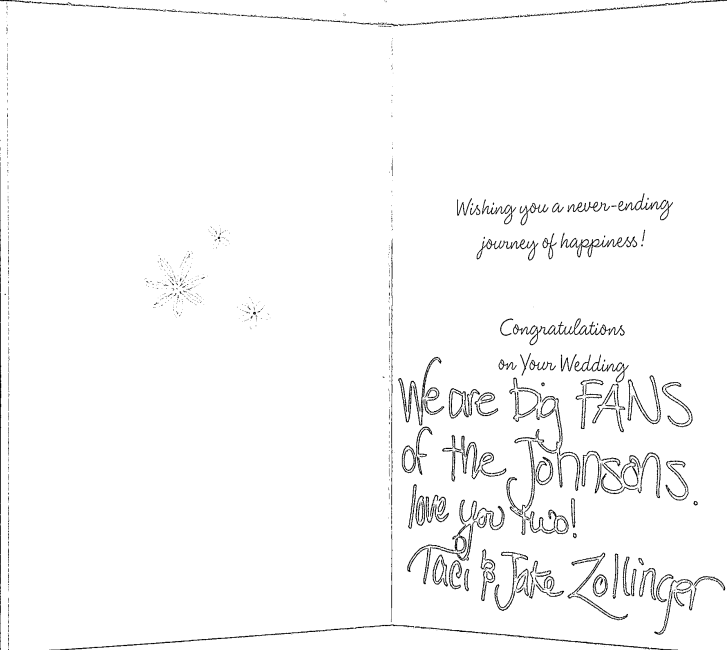 Wishing you a never-ending
journey of happiness!
Congratulations
on Your Wedding
We are big FANS
of the Johnsons.
love you two!
Taci & Jake Zollinger